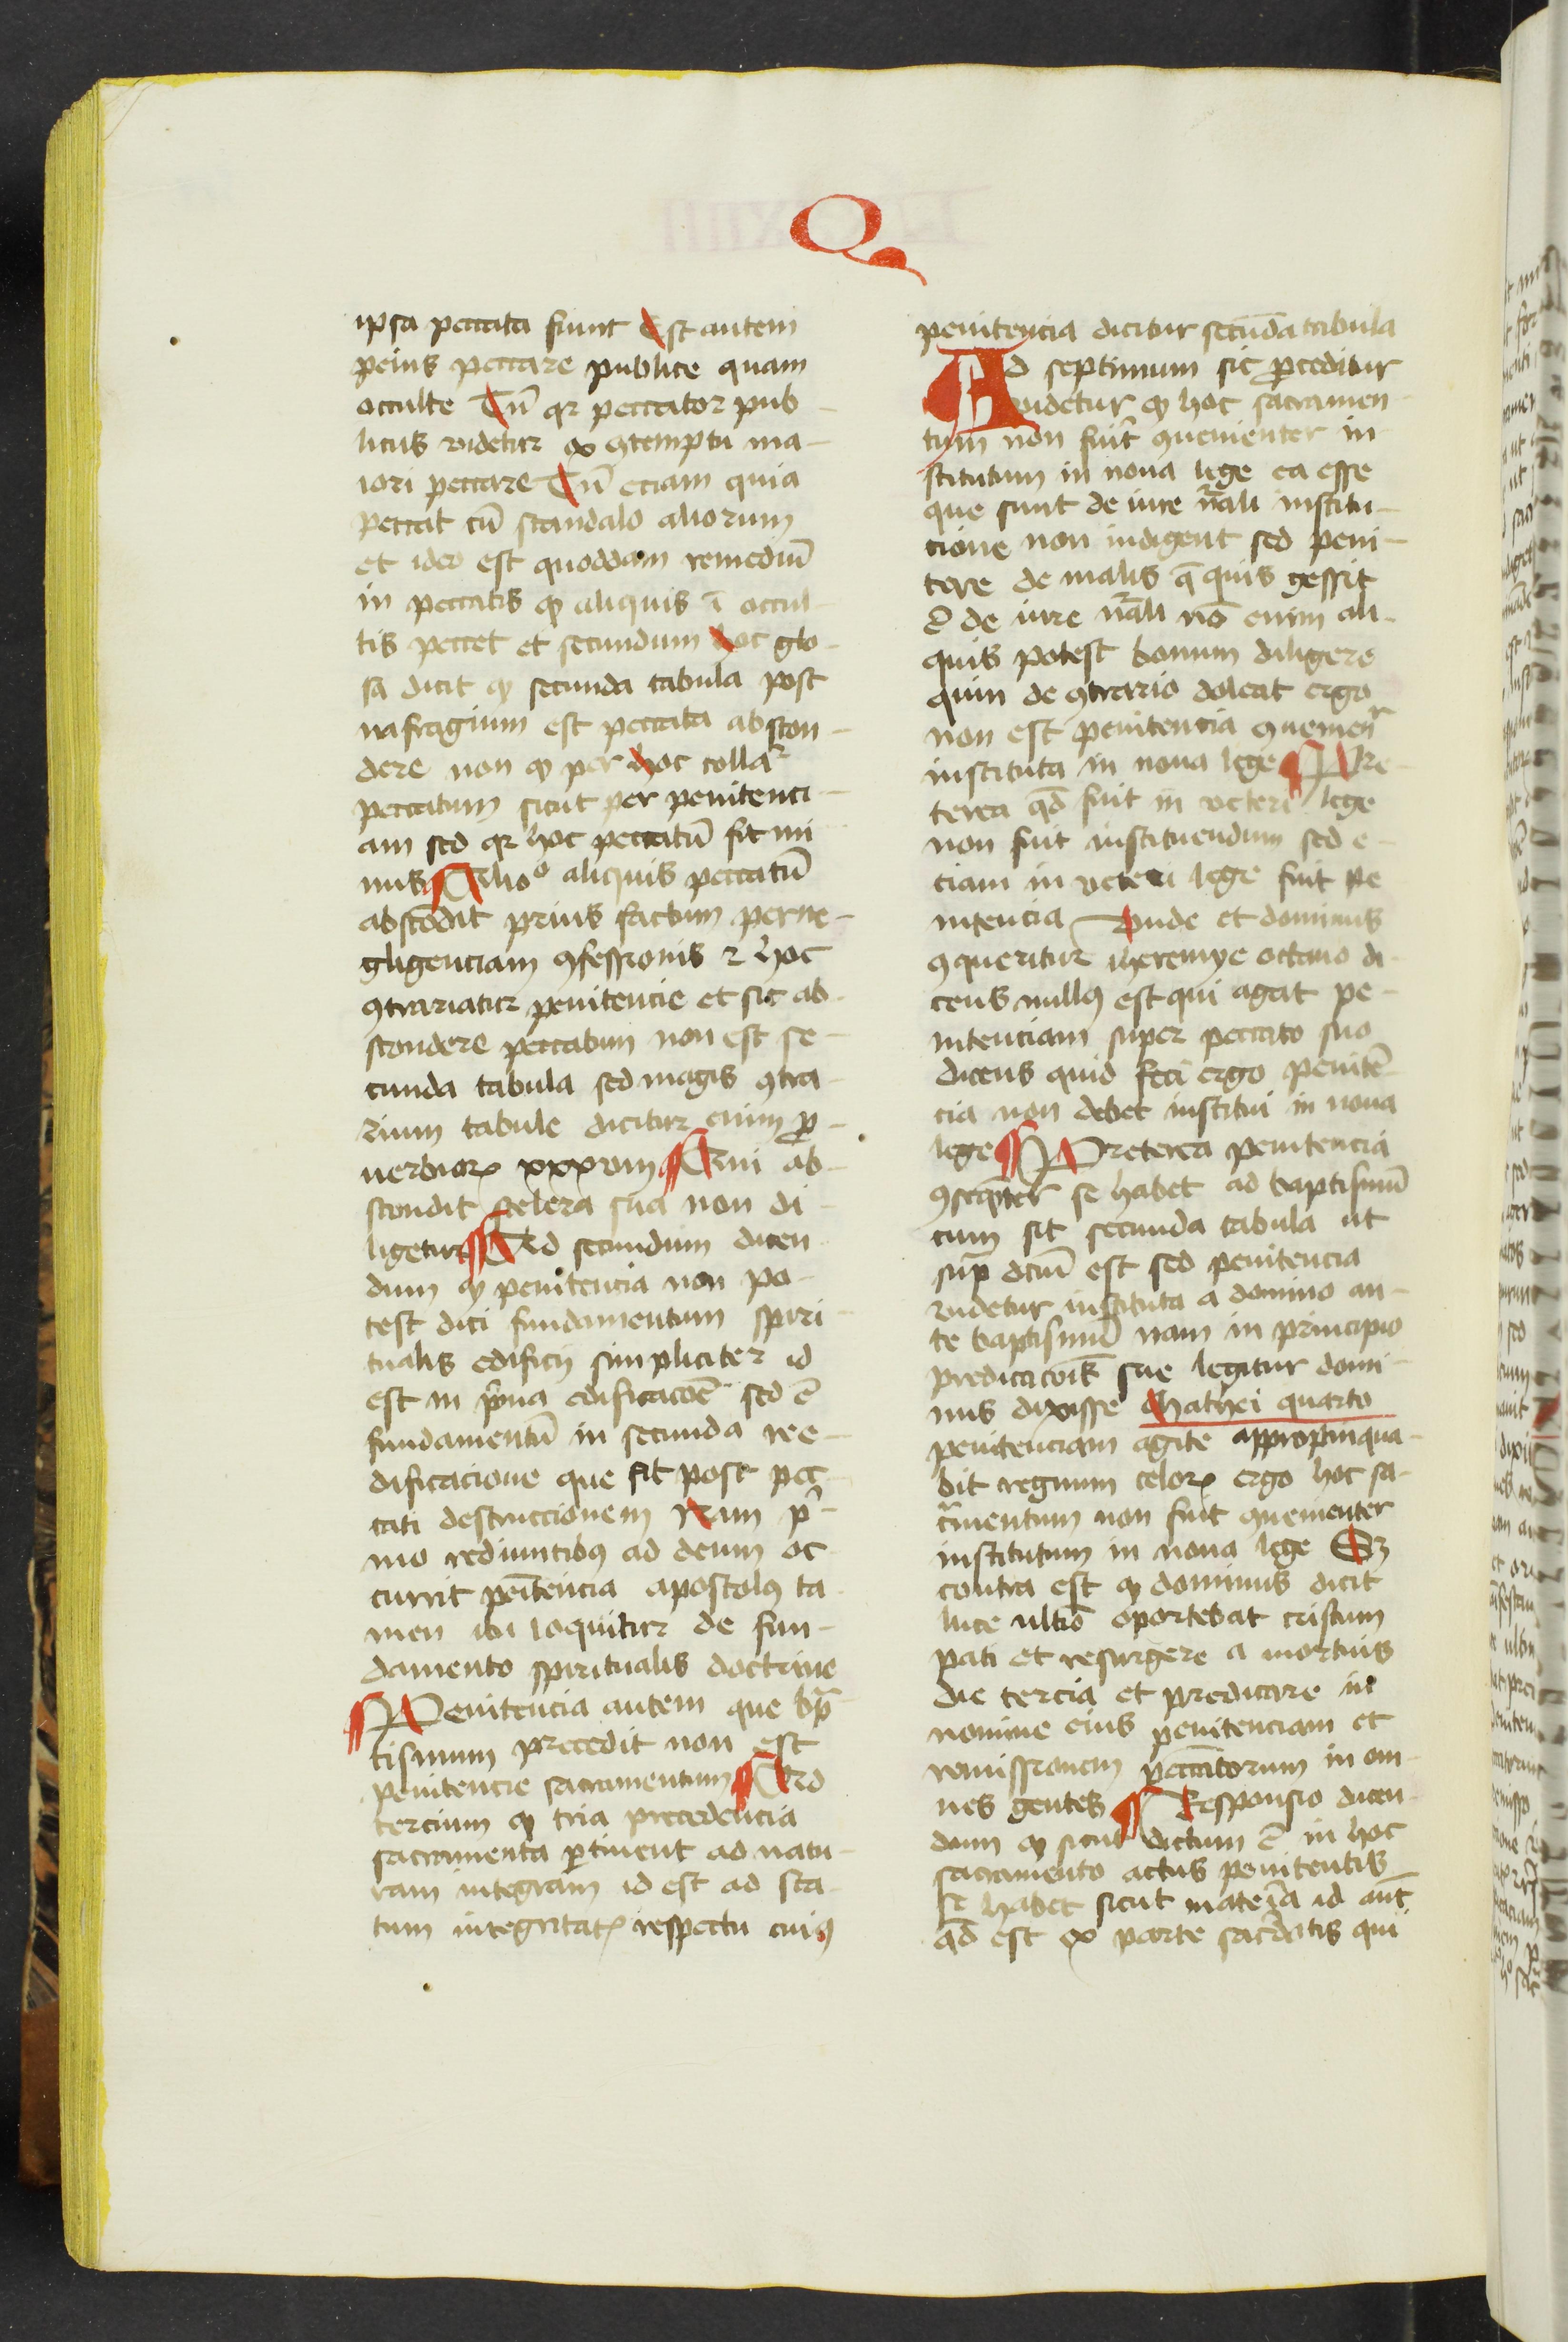 Q
ipsa peccata fiunt Est autem
peius peccare publice quam
occulte Tū qꝛ peccator pub
licus videtur ex ꝯtemptu ma-
iori peccare Tū eciam quia
peccat cū scandalo aliorum
et ideo est quoddam remediū
in peccatis ꝙ aliquis ī occul
tis peccet et secundum hoc glo-
sa dicit ꝙ secunda tabula post
nafragium est peccata abscon-
dere non ꝙ per hoc collaʳ
peccatum sicut per penitenci-
am sed qꝛ hoc peccatū fit mi
nus Alioº aliquis peccatū
abscōdit prius factum per ne-
gligenciam ꝯfessionis ⁊ hoc
ꝯtrariatur penitencie et sic ab-
scondere peccatum non est se-
cunda tabula sed magis ꝯtra-
rium tabule dicitur enim ꝓ-
uerbioꝝ xxxviij Qui ab-
scondit scelera sua non di-
ligetur Ad secundum dicen
dum ꝙ penitencia non po-
test dici fundamentum spiri-
tualis edificij simpliciter id
est in p̄ma edificacōe sed ē
fundamentū in secunda ree-
dificacione que fit post pec
cati destruccionem Nam pⁱ-
mo redeuntibꝰ ad deum oc
currit penitēcia apostolꝰ ta
men ibi loquitur de fun-
damento spiritualis doctrine
Penitencia autem que bap-
tismum precedit non est
penitencie sacramentum Ad
tercium ꝙ tria precedencia
sacramenta ꝑtinent ad natu-
ram integram id est ad sta-
tum integritatꝭ respectu cuiꝰ
penitencia dicitur secūda tabula
Ad septimum sic ꝓceditur
videtur ꝙ hoc sacramen
tum non fuit ꝯuenienter in-
stitutum in noua lege ea esse
que sunt de iure nr̄ali institu-
cione non indigent sed peni-
tere de malis q̄ quis gessit
ē de iure nr̄ali nō enim ali-
quis potest bonum diligere
quin de ꝯtrario doleat ergo
non est penitencia ꝯuenienʳ
instituta in noua lege Pre-
terea qd̄ fuit in veteri lege
non fuit instituendum sed e-
ciam in veteri lege fuit pe
nitencia Unde et dominus
ꝯqueritur iheremye octauo di-
cens nullꝰ est qui agat pe-
nitenciam super peccato suo
dicens quid feci ergo penitē-
cia non debet institui in noua
lege Preterea penitencia
ꝯseqn̄ter se habet ad baptismū
cum sit secunda tabula ut
supͣ dcm̄ est sed penitencia
videtur instituta a domino an-
te baptismū nam in principio
predicacōis sue legitur domi-
nus dixisse Mathei quarto
penitenciam agite appropinqua-
bit regnum celoꝝ ergo hoc sa-
cͬmentum non fuit ꝯuenienter
institutum in noua lege Sꝫ
contra est ꝙ dominus dicit
luce ultīo oportebat cristum
pati et resurgere a mortuis
die tercia et predicare in
nomine eius penitenciam et
remissionem peccatorum in om-
nes gentes Responsio dicen-
dum ꝙ sicut dictum ē in hoc
sacramento actus penitentis
se habet sicut mateīa id aut̄
qd̄ est ex parte sac̄dotis qui